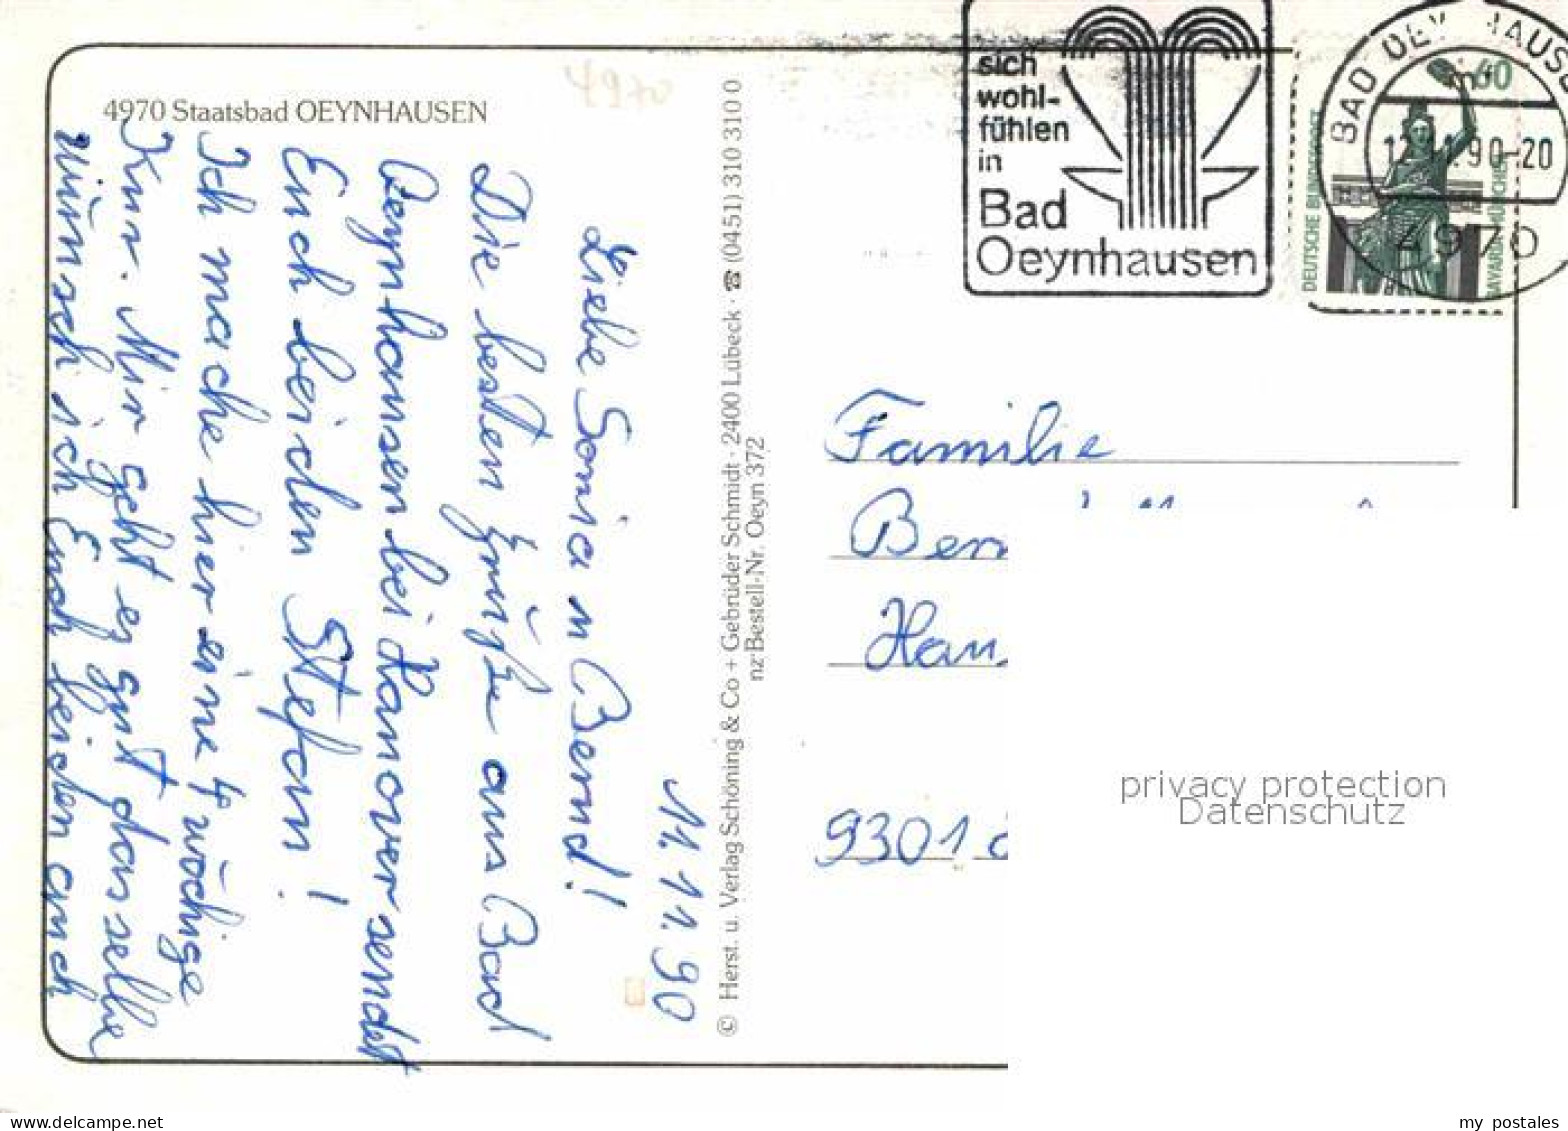 4970 Staatsbad OEYNHAUSEN
11.11.90
Liebe Sonia u Bernd!
Die besten Grüße aus Bad
Oeynhausen bei Hanover sendet
Euch beiden Stefan!
Ich mache hier eine 4 wöchige
Kur. Mir geht es gut dasselbe
wünsch ich Euch beiden auch
© Herst. u. Verlag Schöning & Co + Gebrüder Schmidt · 2400 Lübeck · ☎ (0451) 310 310 0
nz Bestell-Nr. Oeyn 372
sich
wohl-
fühlen
in
Bad
Oeynhausen
BAD OEYNHAUSEN
90-20
4970
60
DEUTSCHE BUNDESPOST
BAVARIA MÜNCHEN
Familie
Bern
Han
9301
privacy protection
Datenschutz
www.delcampe.net
my_postales